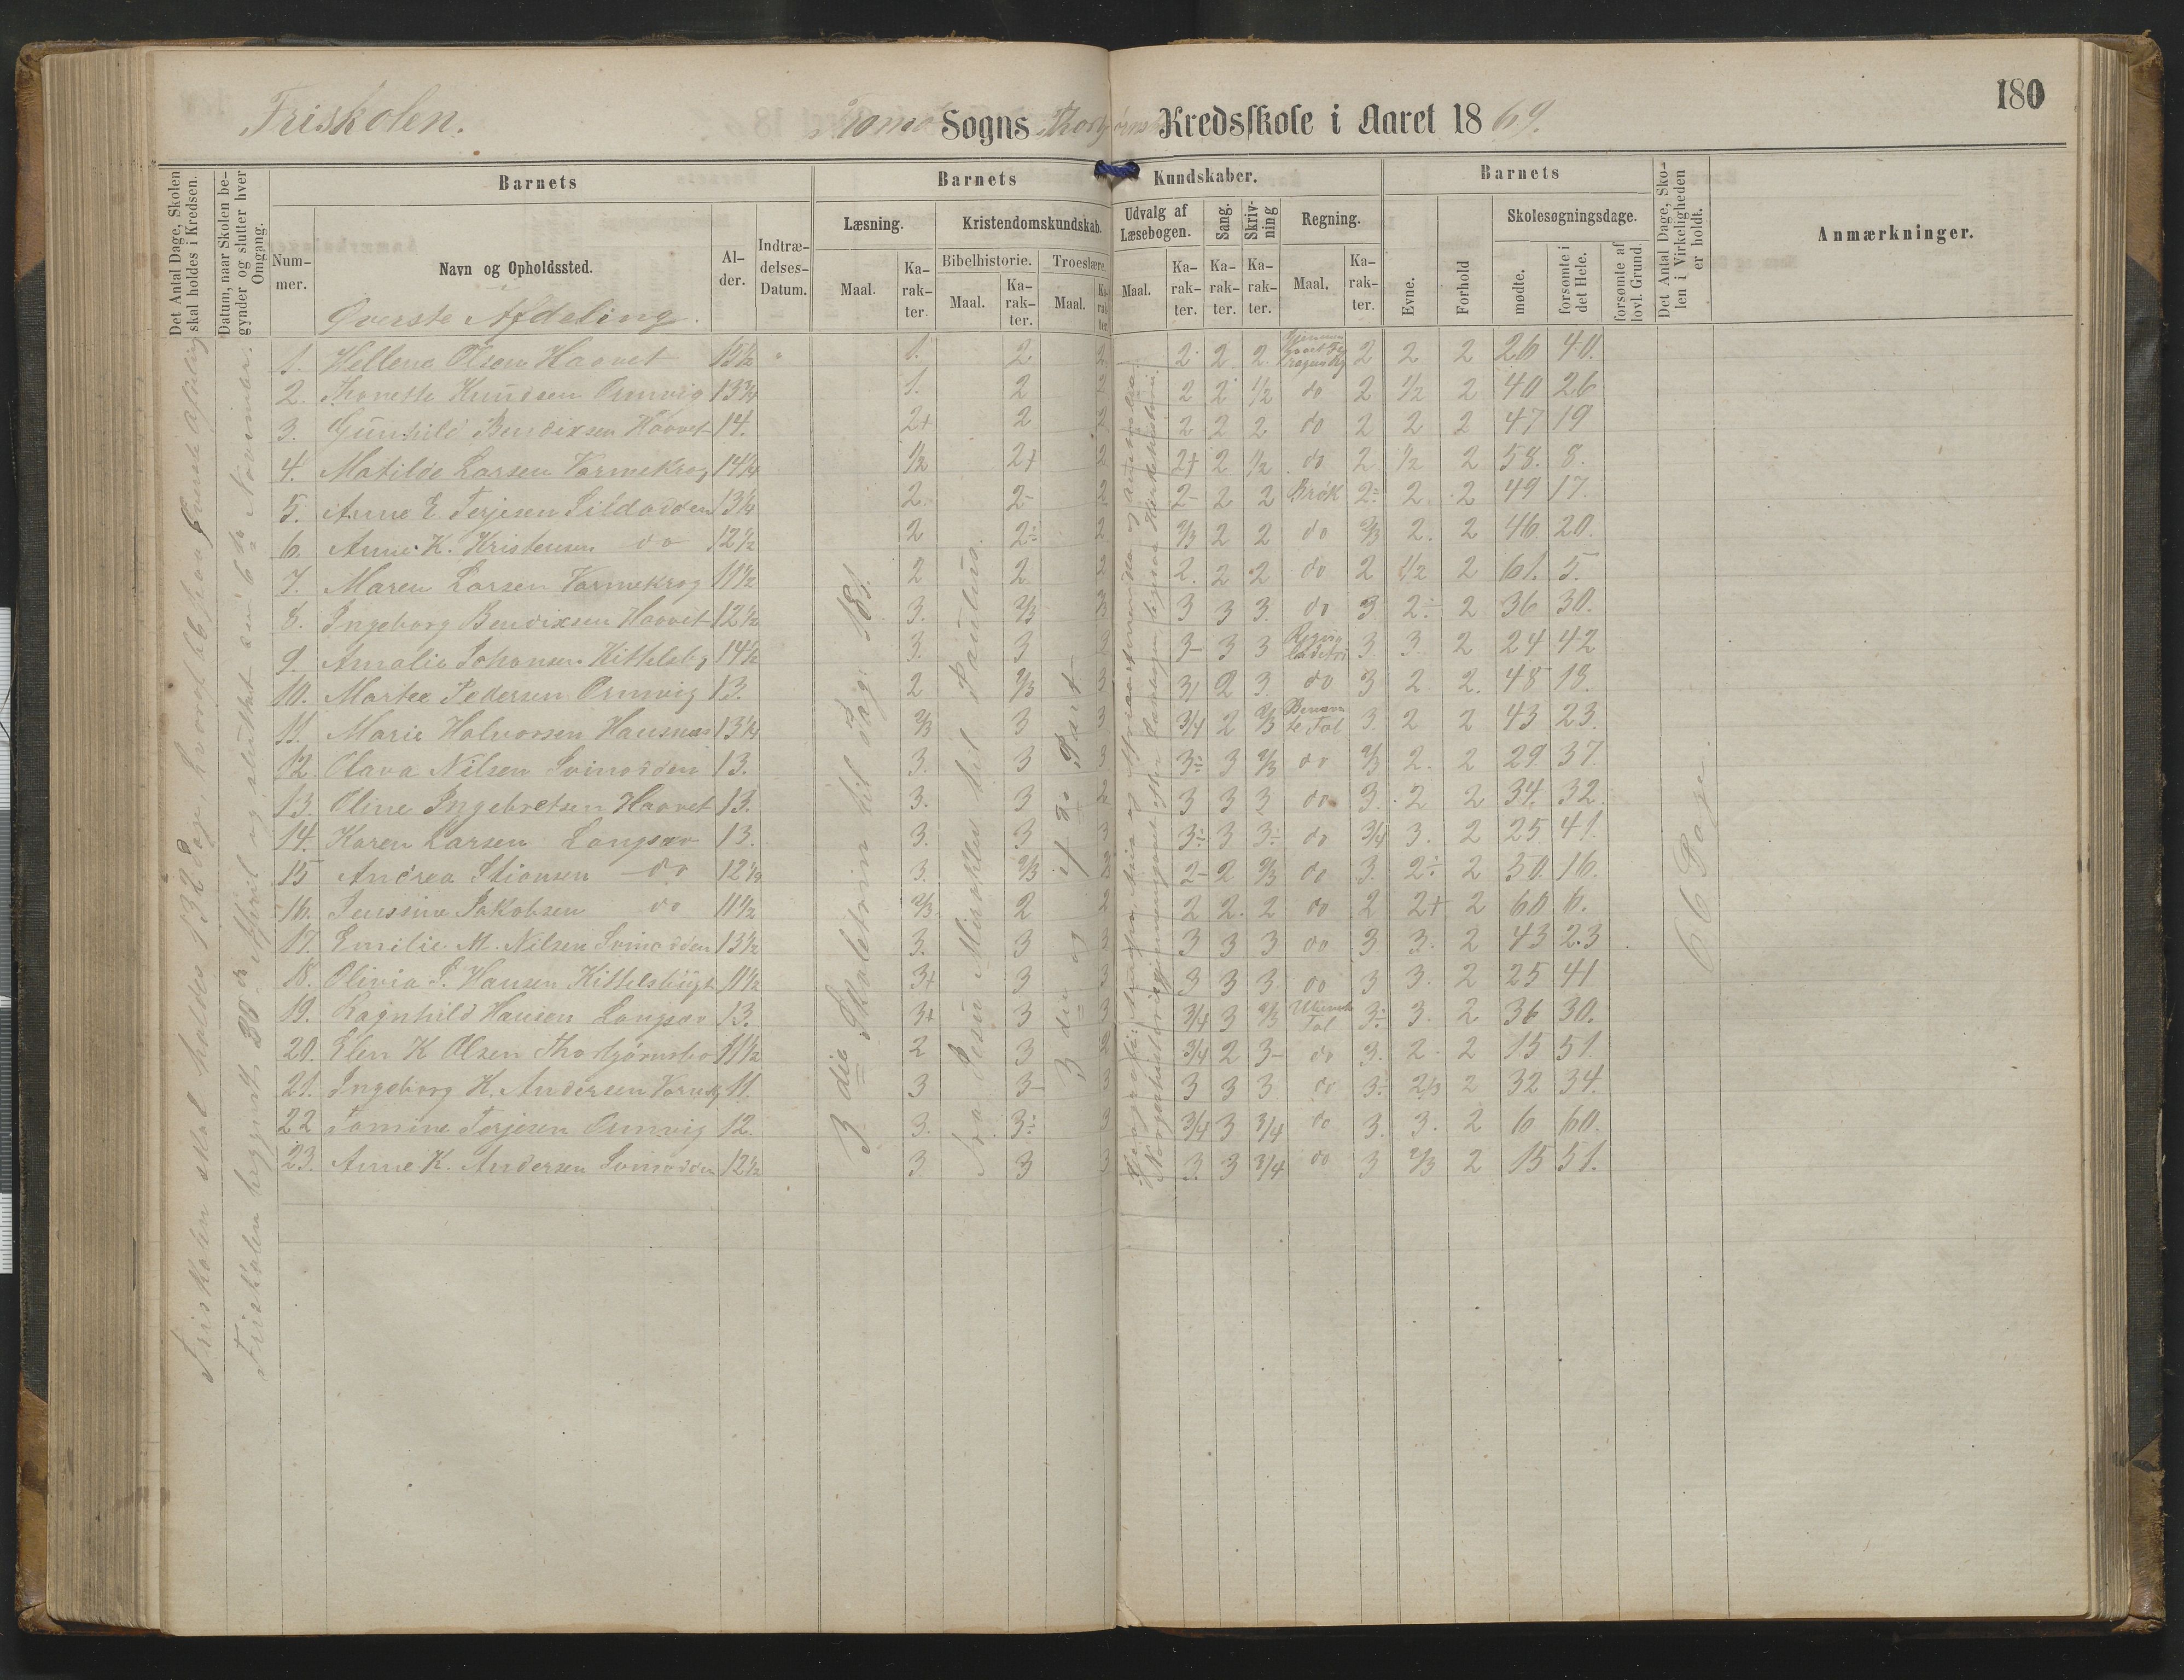 180
Friskolen.
Tromø Sogns Kredsskole i Aaret 1869.
Det Antal Dage, Skolen skal holdes i Kredsen.
Datum, naar Skolen begynder og slutter hver Omgang.
Barnets
Barnets Kundskaber.
Barnets
Det Antal Dage, Skolen i Virkeligheden er holdt.
Anmærkninger.
Nummer.
Navn og Opholdssted.
Alder.
Indtrædelses-Datum.
Læsning.
Kristendomskundskab.
Udvalg af Læsebogen.
Sang.
Skrivning
Regning.
Evne.
Forhold
Skolesøgningsdage.
Bibelhistorie.
Troeslære.
Maal.
Karakter.
Maal.
Karakter.
Maal.
Karakter
Maal.
Karakter.
Karakter.
Karakter.
Maal.
Karakter.
mødte.
forsømte i det Hele.
forsømte af lovl. Grund.
Øverste Afdeling.
1. Hellene Olsen Haavet 12½ 1. 2 2 2 2 2 2 2 2 26 40.
2. Thonette Knudsen Omvig 13¾ 1. 2 2 2 2 ½ do 2 ½ 2 40 26
3. Gunhild Bendixsen Haavet 14. 2+ 2 2 2 2 2 do 2 2 2 47 19
4. Matilde Larsen Varmekrog 14¼ ½ 2+ 2 2+ 2 ½ do 2 ½ 2 58. 8.
5. Anne E. Terjesen Sildodden 13¼ 2. 2- 2 2- 2 2 Brøk 2÷ 2 2 49 17.
6. Anne K. Kristensen do 12½ 2 2÷ 2 2/3 2 2 do 2/3 2. 2 46 20.
7. Maren Larsen Varmekrog 11½ 2 2 2 2. 2 2 do 2 ½ 2 61. 5.
8. Ingeborg Bendixsen Haavet 12½ 3. 2/3 3 3 3. do 3 2÷ 2 36 30.
9. Amalia Johansen Kittelsb 14½ 3. 3 2 3- 3 3 3. 3. 2 24 42
10. Martea Pedersen Omvig 13. 2 2/3 3 2 3. do 3 2 2. 48 18.
11. Marie Halvorsen Hausnes 13¼ 2/3 3 3 3/4 2 2/3 Benævnte Tal 3. 2 2 43 23.
12. Olava Nilsen Svinodden 13. 3. 3 3 3÷ 3 2/3 do 2/3 2. 2 29 37.
13. Oline Ingebretsen Haavet 13. 3. 3 2 3 3 3 do 3. 2 2 34. 32.
14. Karen Larsen Langsæv 13. 3. 3 3 3÷ 3 3÷ do 3/4 3. 2 25 41.
15 Andrea Stiansen do 12¼ 3. 2/3 3 2- 2 2/3 do 3. 2÷ 2 50. 16.
16. Jenssine Jakobsen do 11½ 2/3. 2 2 2 2. 2 do 2 2+ 2 60 6.
17. Emilie M. Nilsen Svinodden 13½ 3. 3 3 3 3 3 do 3 3. 2 43 23
18. Olivia J. Hansen Kittelsbugt 11½ 3+ 3 3 3 3 3 do 3 3. 2 25 41
19. Ragnhild Hansen Langsæv 13. 3+ 3 3 3/4 3 2/3 Ubenævnte Tal 3÷ 3. 2 36 30.
20. Elen K Olsen Thorbjørnsbo 11½ 2 3 2 3/4 2 3- do 3. 2. 2 15 51.
21. Ingeborg H. Andersen 11. 3 3- 3 3 3 3 do 3÷ 2/3 2 32 34.
22 Tomine Terjesen Omvig 12. 3. 3÷ 3 3/4 3 3/4 do 3. 3. 2 6 60.
23. Anne K. Andersen Svinodden 12½ 3 3 3 3. 3 3/4 do 3 2/3 2 15 51.
Friskolen skal holdes 132 Dage, hvoraf 66 paa Øverste Afdeling
Friskolen begyndt 30te April og sluttet den 6te November.
3die Skoletrin til Pag. 181.
Fra Jesu Mirakler til Paulus.
3die og 4do Part
66 Dage.